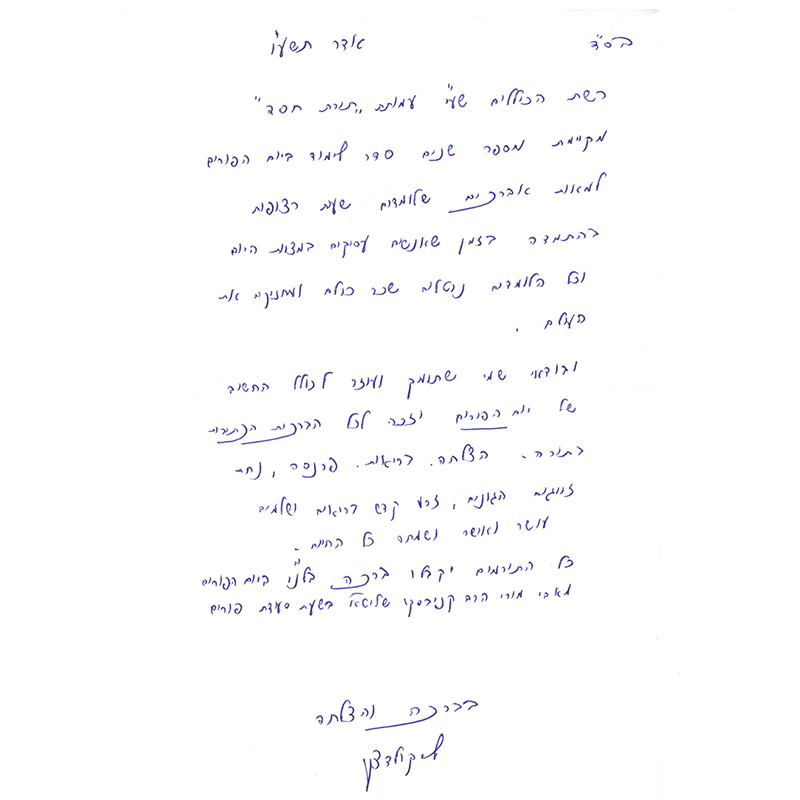 בס"ד
אדר תשע"ו
רשת הכוללים שע"י עמותת "תורת חסד"
מקיימת מספר שנים סדר לימוד ביום הפורים
למאות אברכים שלומדים שעות רצופות
בהתמדה בזמן שאנשים עסוקים במצוות היום
וכל הלומדים נוטלים שכר כולם ומחזיקים את
העולם.
ובודאי שמי שתומך ועוזר לכולל החשוב
של יום הפורים יזכה לכל הברכות הכתובות
בתורה. הצלחה. בריאות. פרנסה, נחת
זיווגים הגונים, זרע קדש בריאים ושלמים
עושר ואושר ושמחה כל החיים.
כל התורמים יקבלו ברכה בלנ"ו היום הפורים
מאבי מורי הרב קניבסקי שליט"א בשעת סעודת פורים
בברכה והצלחה